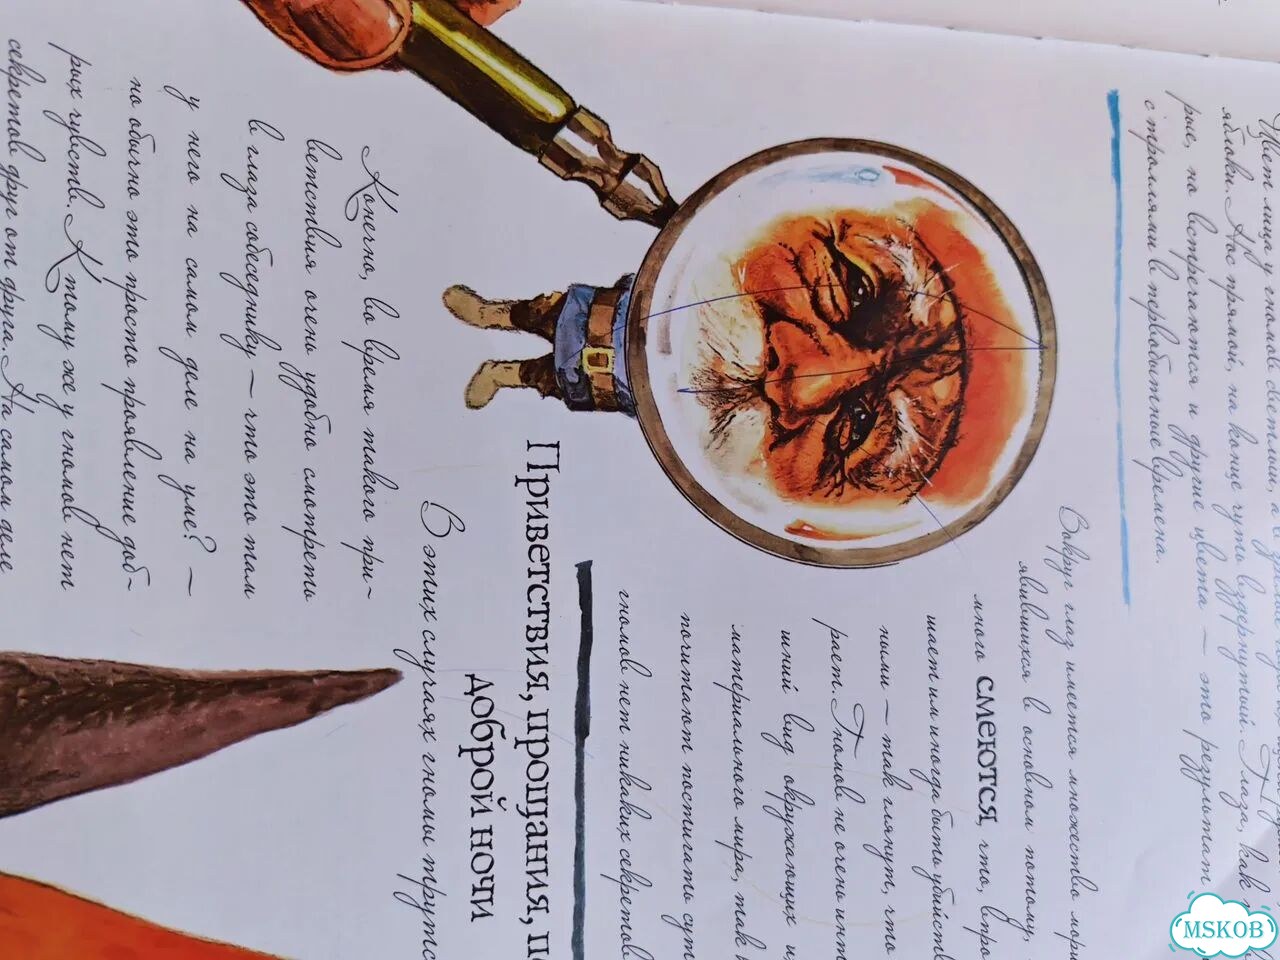 Цвет лица у гномов светлый, а
яблоки. Нос прямой, на конце чуть вздернутый. Глаза, как
рые, но встречаются и другие цвета — это результат
с троллями в первобытные времена.
Вокруг глаз имеется множество мор
явившихся в основном потому,
много смеются, что, впро
шает им иногда быть убийств
ными — так глянут, что
раст. Гномов не очень инт
шний вид окружающих и
материального мира, так
почитают постигать сут
гномов нет никаких секретов
Приветствия, прощания, п
доброй ночи
В этих случаях гномы трутс
Конечно, во время такого при-
ветствия очень удобно смотреть
в глаза собеседнику — что это там
у него на самом деле на уме? —
но обычно это просто проявление доб-
рых чувств. К тому же у гномов нет
секретов друг от друга. На самом деле
MSKOB